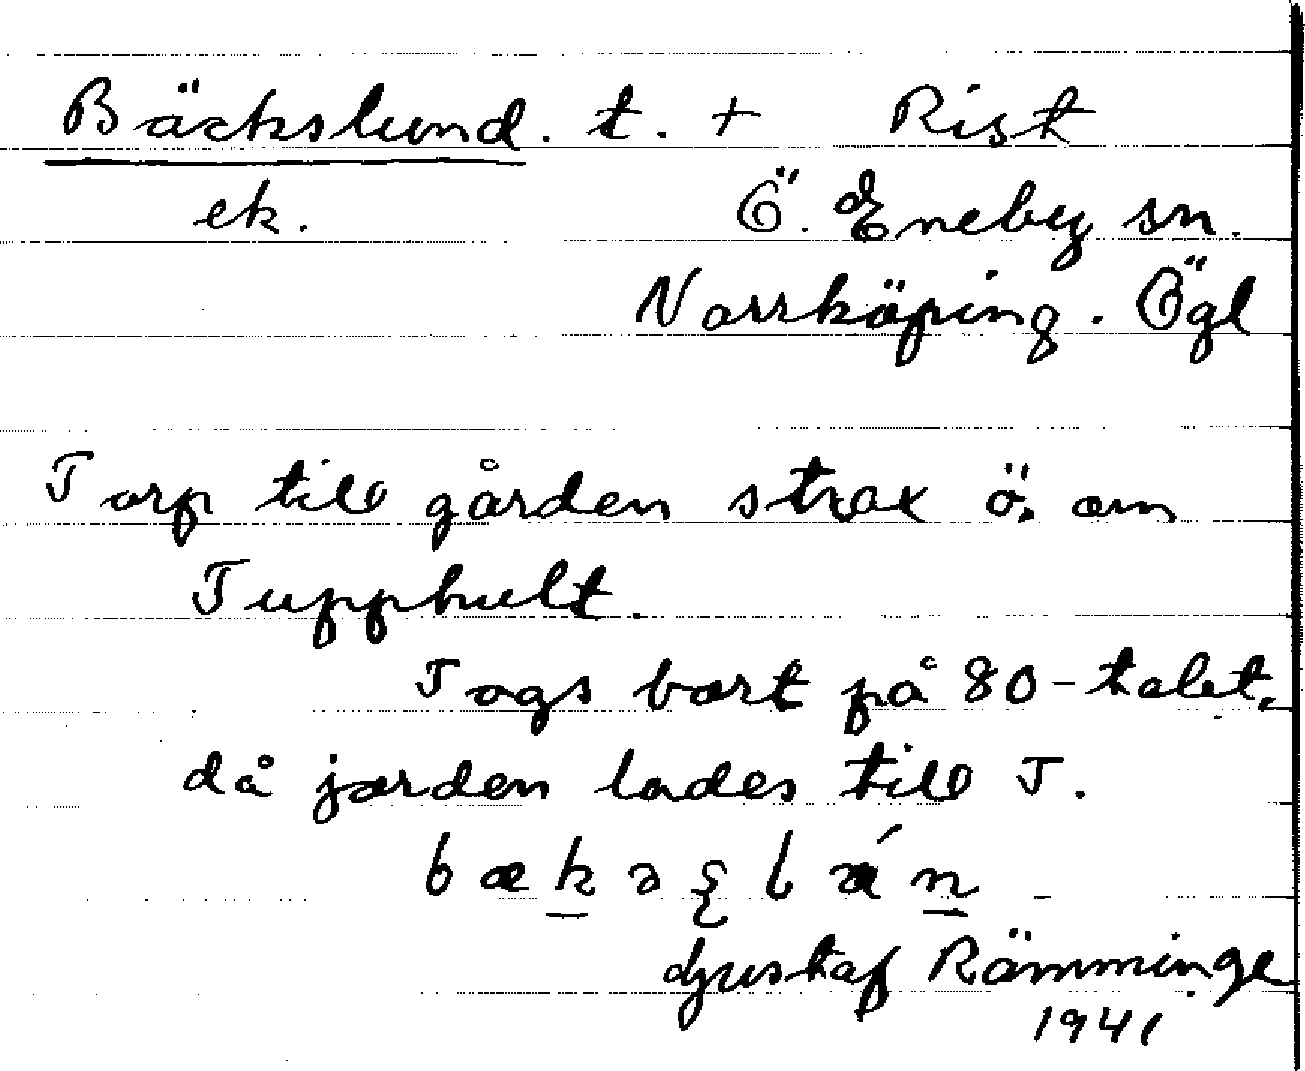 Bäckslund. t. + Rist
ek. Ö. Eneby sn.
Norrköping. Ögl
Torp till gården strax ö. om
Tupphult.
Togs bort på 80-talet,
då jorden lades till T.
Gustaf Rämminge
1941